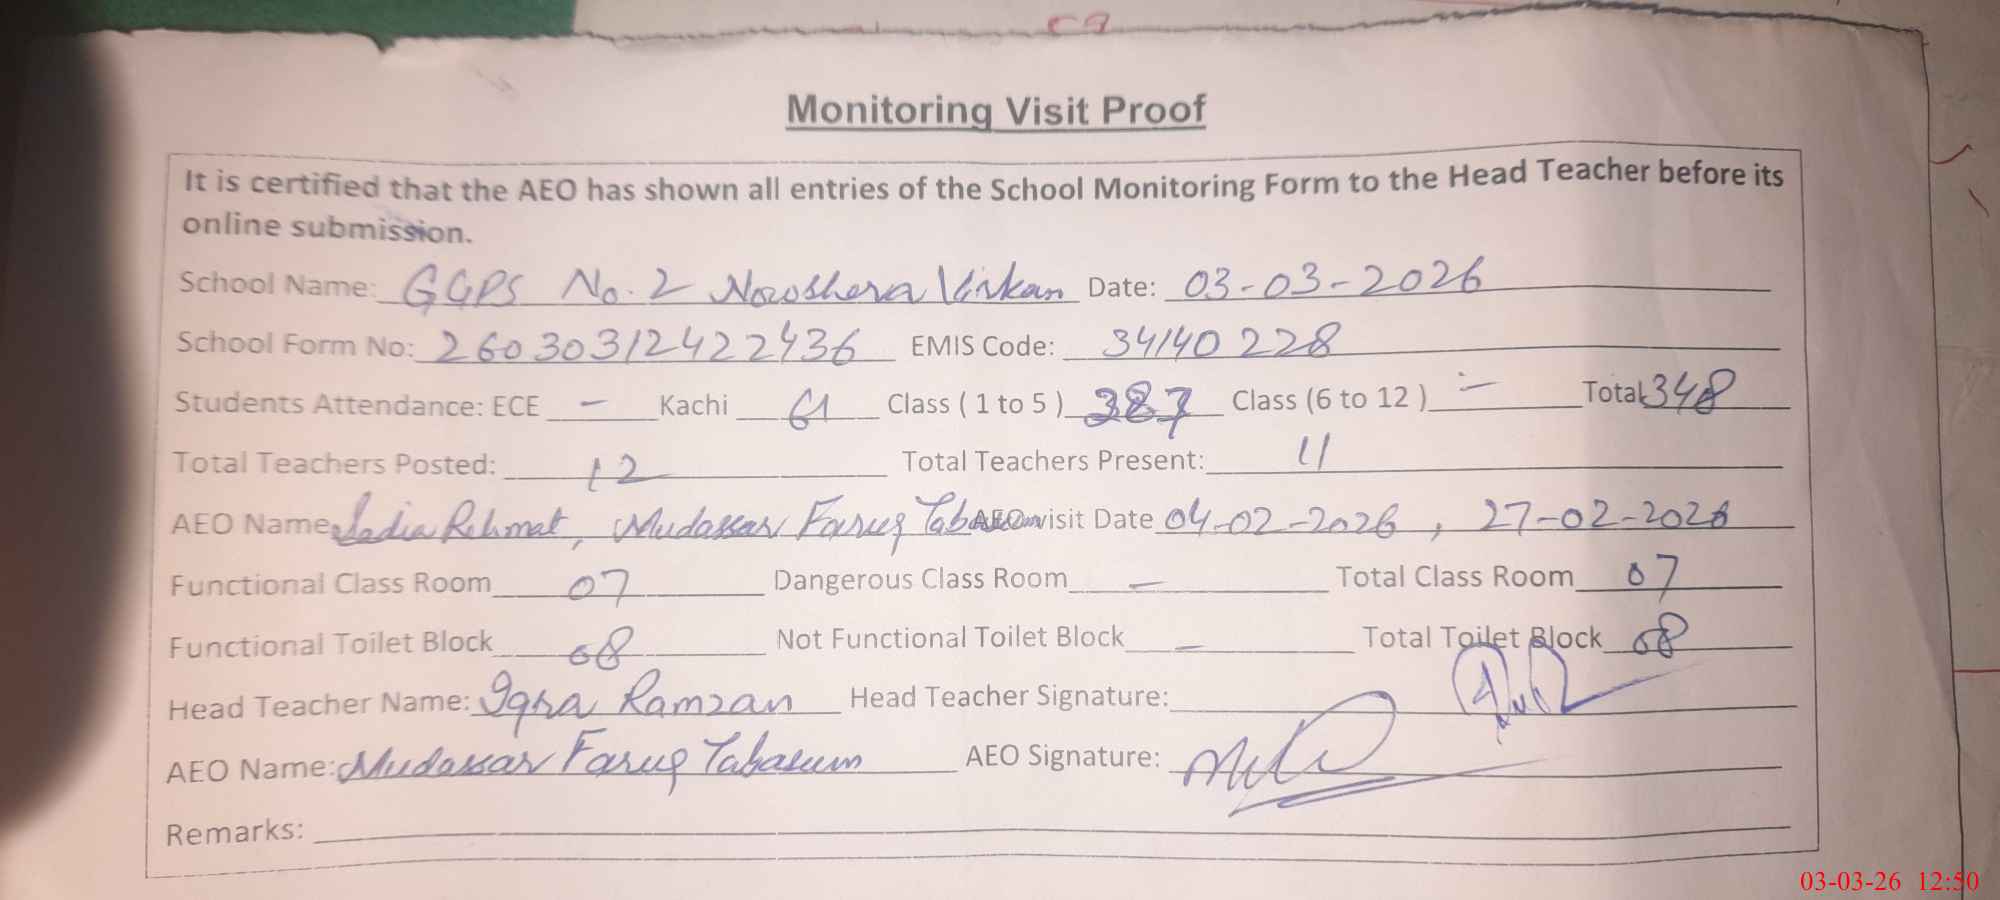 Monitoring Visit Proof
It is certified that the AEO has shown all entries of the School Monitoring Form to the Head Teacher before its
online submission.
School Name: GGPS No. 2 Nowshera Virkan Date: 03-03-2026
School Form No: 26030312422436 EMIS Code: 34140228
Students Attendance: ECE - Kachi 61 Class ( 1 to 5 ) 387 Class (6 to 12 ) - Total 348
Total Teachers Posted: 12 Total Teachers Present: 11
AEO Name Sadia Rehmat, Mudassar Faruq Tabasum AEO visit Date 04-02-2026, 27-02-2026
Functional Class Room 07 Dangerous Class Room - Total Class Room 07
Functional Toilet Block 08 Not Functional Toilet Block - Total Toilet Block 08
Head Teacher Name: Iqra Ramzan Head Teacher Signature:
AEO Name: Mudassar Faruq Tabasum AEO Signature:
Remarks:
03-03-26 12:50